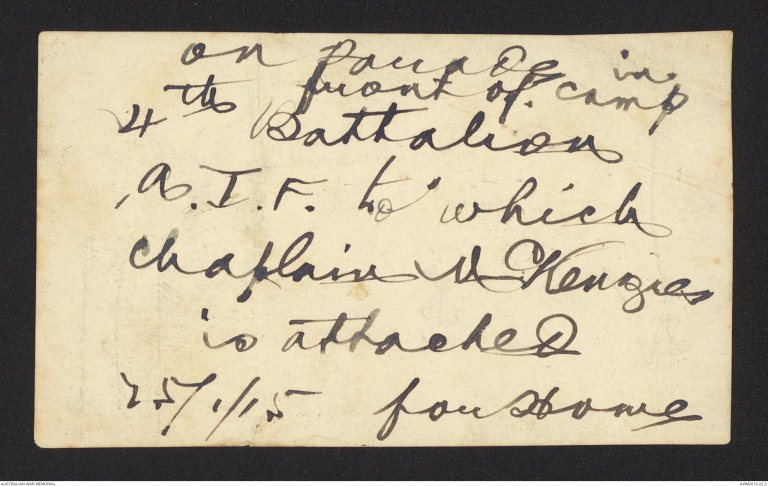 on parade in
front of camp
4th Battalion
A.I.F. to which
Chaplain McKenzie
is attached
25/1/15 for Home
AUSTRALIAN WAR MEMORIAL